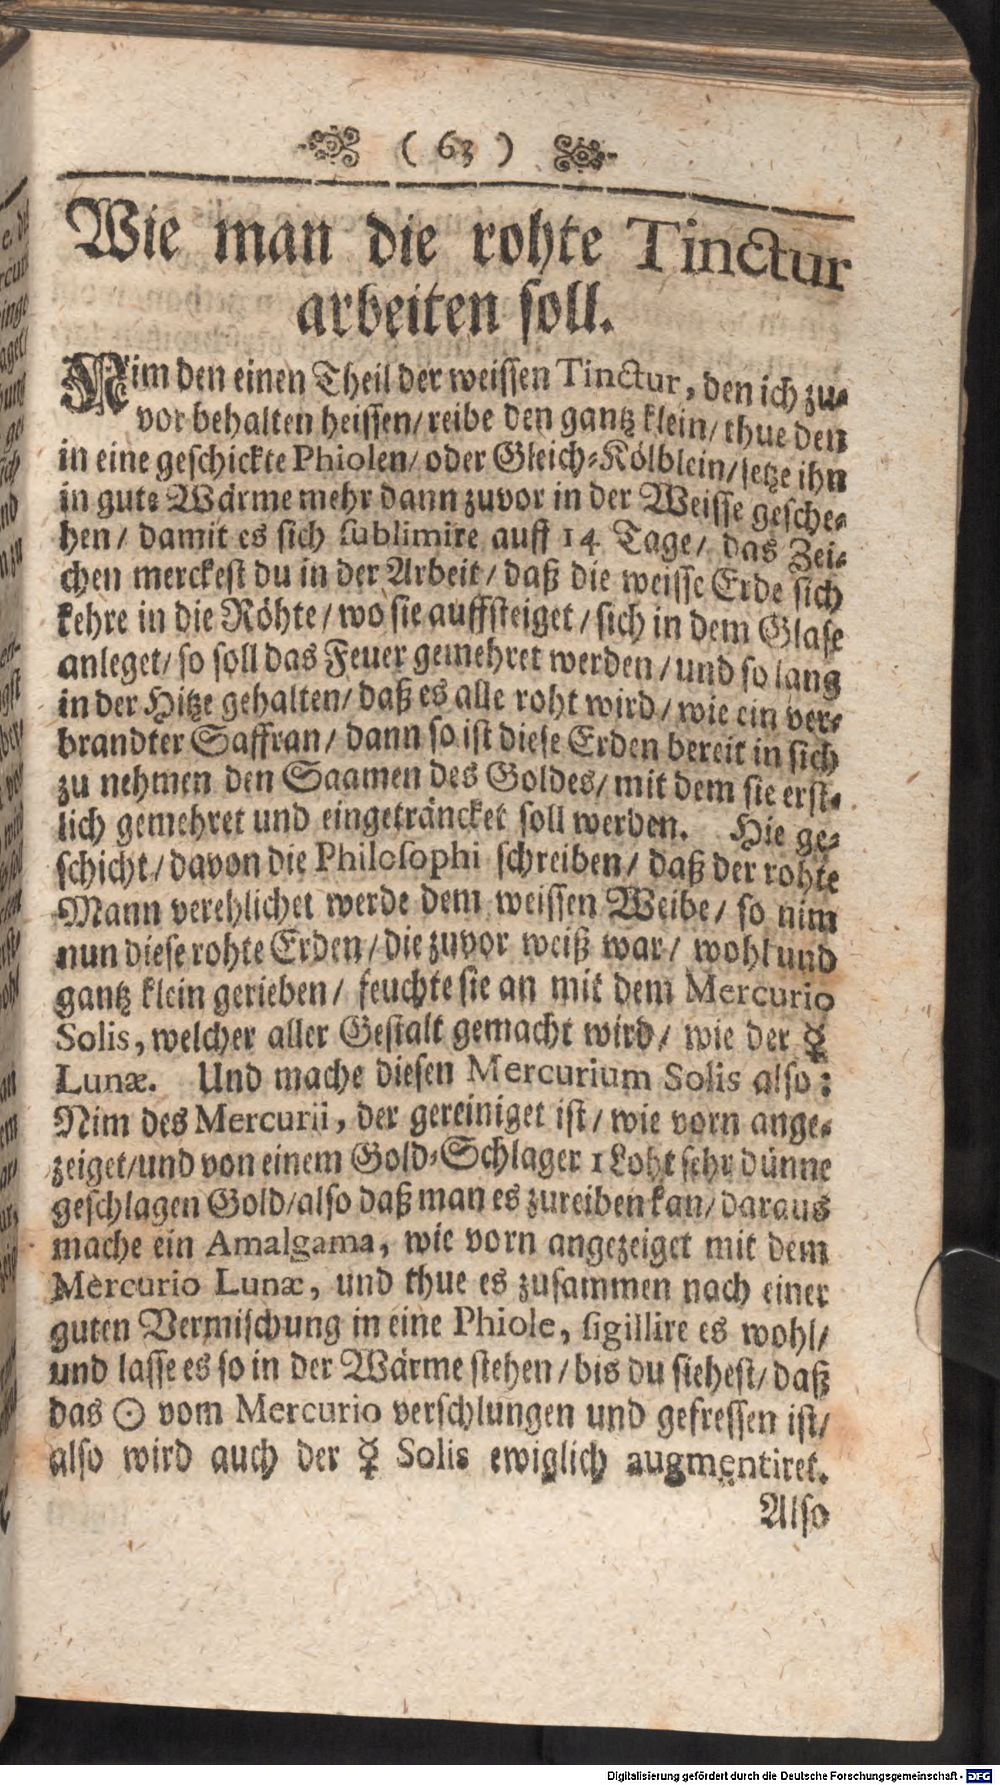 ( 63 )
Wie man die rohte Tinctur
arbeiten soll.
Nim den einen Theil der weissen Tinctur, den ich zu-
vor behalten heissen/ reibe den gantz klein/ thue den
in eine geschickte Phiolen/ oder Gleich-Kölblein/ setze ihn
in gute Wärme mehr dann zuvor in der Weisse gesche-
hen/ damit es sich sublimire auff 14 Tage/ das Zei-
chen merckest du in der Arbeit/ daß die weisse Erde sich
kehre in die Röhte/ wo sie auffsteiget/ sich in dem Glase
anleget/ so soll das Feuer gemehret werden/ und so lang
in der Hitze gehalten/ daß es alle roht wird/ wie ein ver-
brandter Saffran/ dann so ist diese Erden bereit in sich
zu nehmen den Saamen des Goldes/ mit dem sie erst-
lich gemehret und eingeträncket soll werden. Hie ge-
schicht/ davon die Philosophi schreiben/ daß der rohte
Mann verehlichet werde dem weissen Weibe/ so nim
nun diese rohte Erden/ die zuvor weiß war/ wohl und
gantz klein gerieben/ feuchte sie an mit dem Mercurio
Solis, welcher aller Gestalt gemacht wird/ wie der ☿
Lunæ. Und mache diesen Mercurium Solis also:
Nim des Mercurii, der gereiniget ist/ wie vorn ange-
zeiget/ und von einem Gold-Schlager 1 Loht sehr dünne
geschlagen Gold/ also daß man es zureiben kan/ daraus
mache ein Amalgama, wie vorn angezeiget mit dem
Mercurio Lunæ, und thue es zusammen nach einer
guten Vermischung in eine Phiole, sigillire es wohl/
und lasse es so in der Wärme stehen/ bis du siehest/ daß
das ☉ vom Mercurio verschlungen und gefressen ist/
also wird auch der ☿ Solis ewiglich augmentiret.
Also
Digitalisierung gefördert durch die Deutsche Forschungsgemeinschaft - DFG